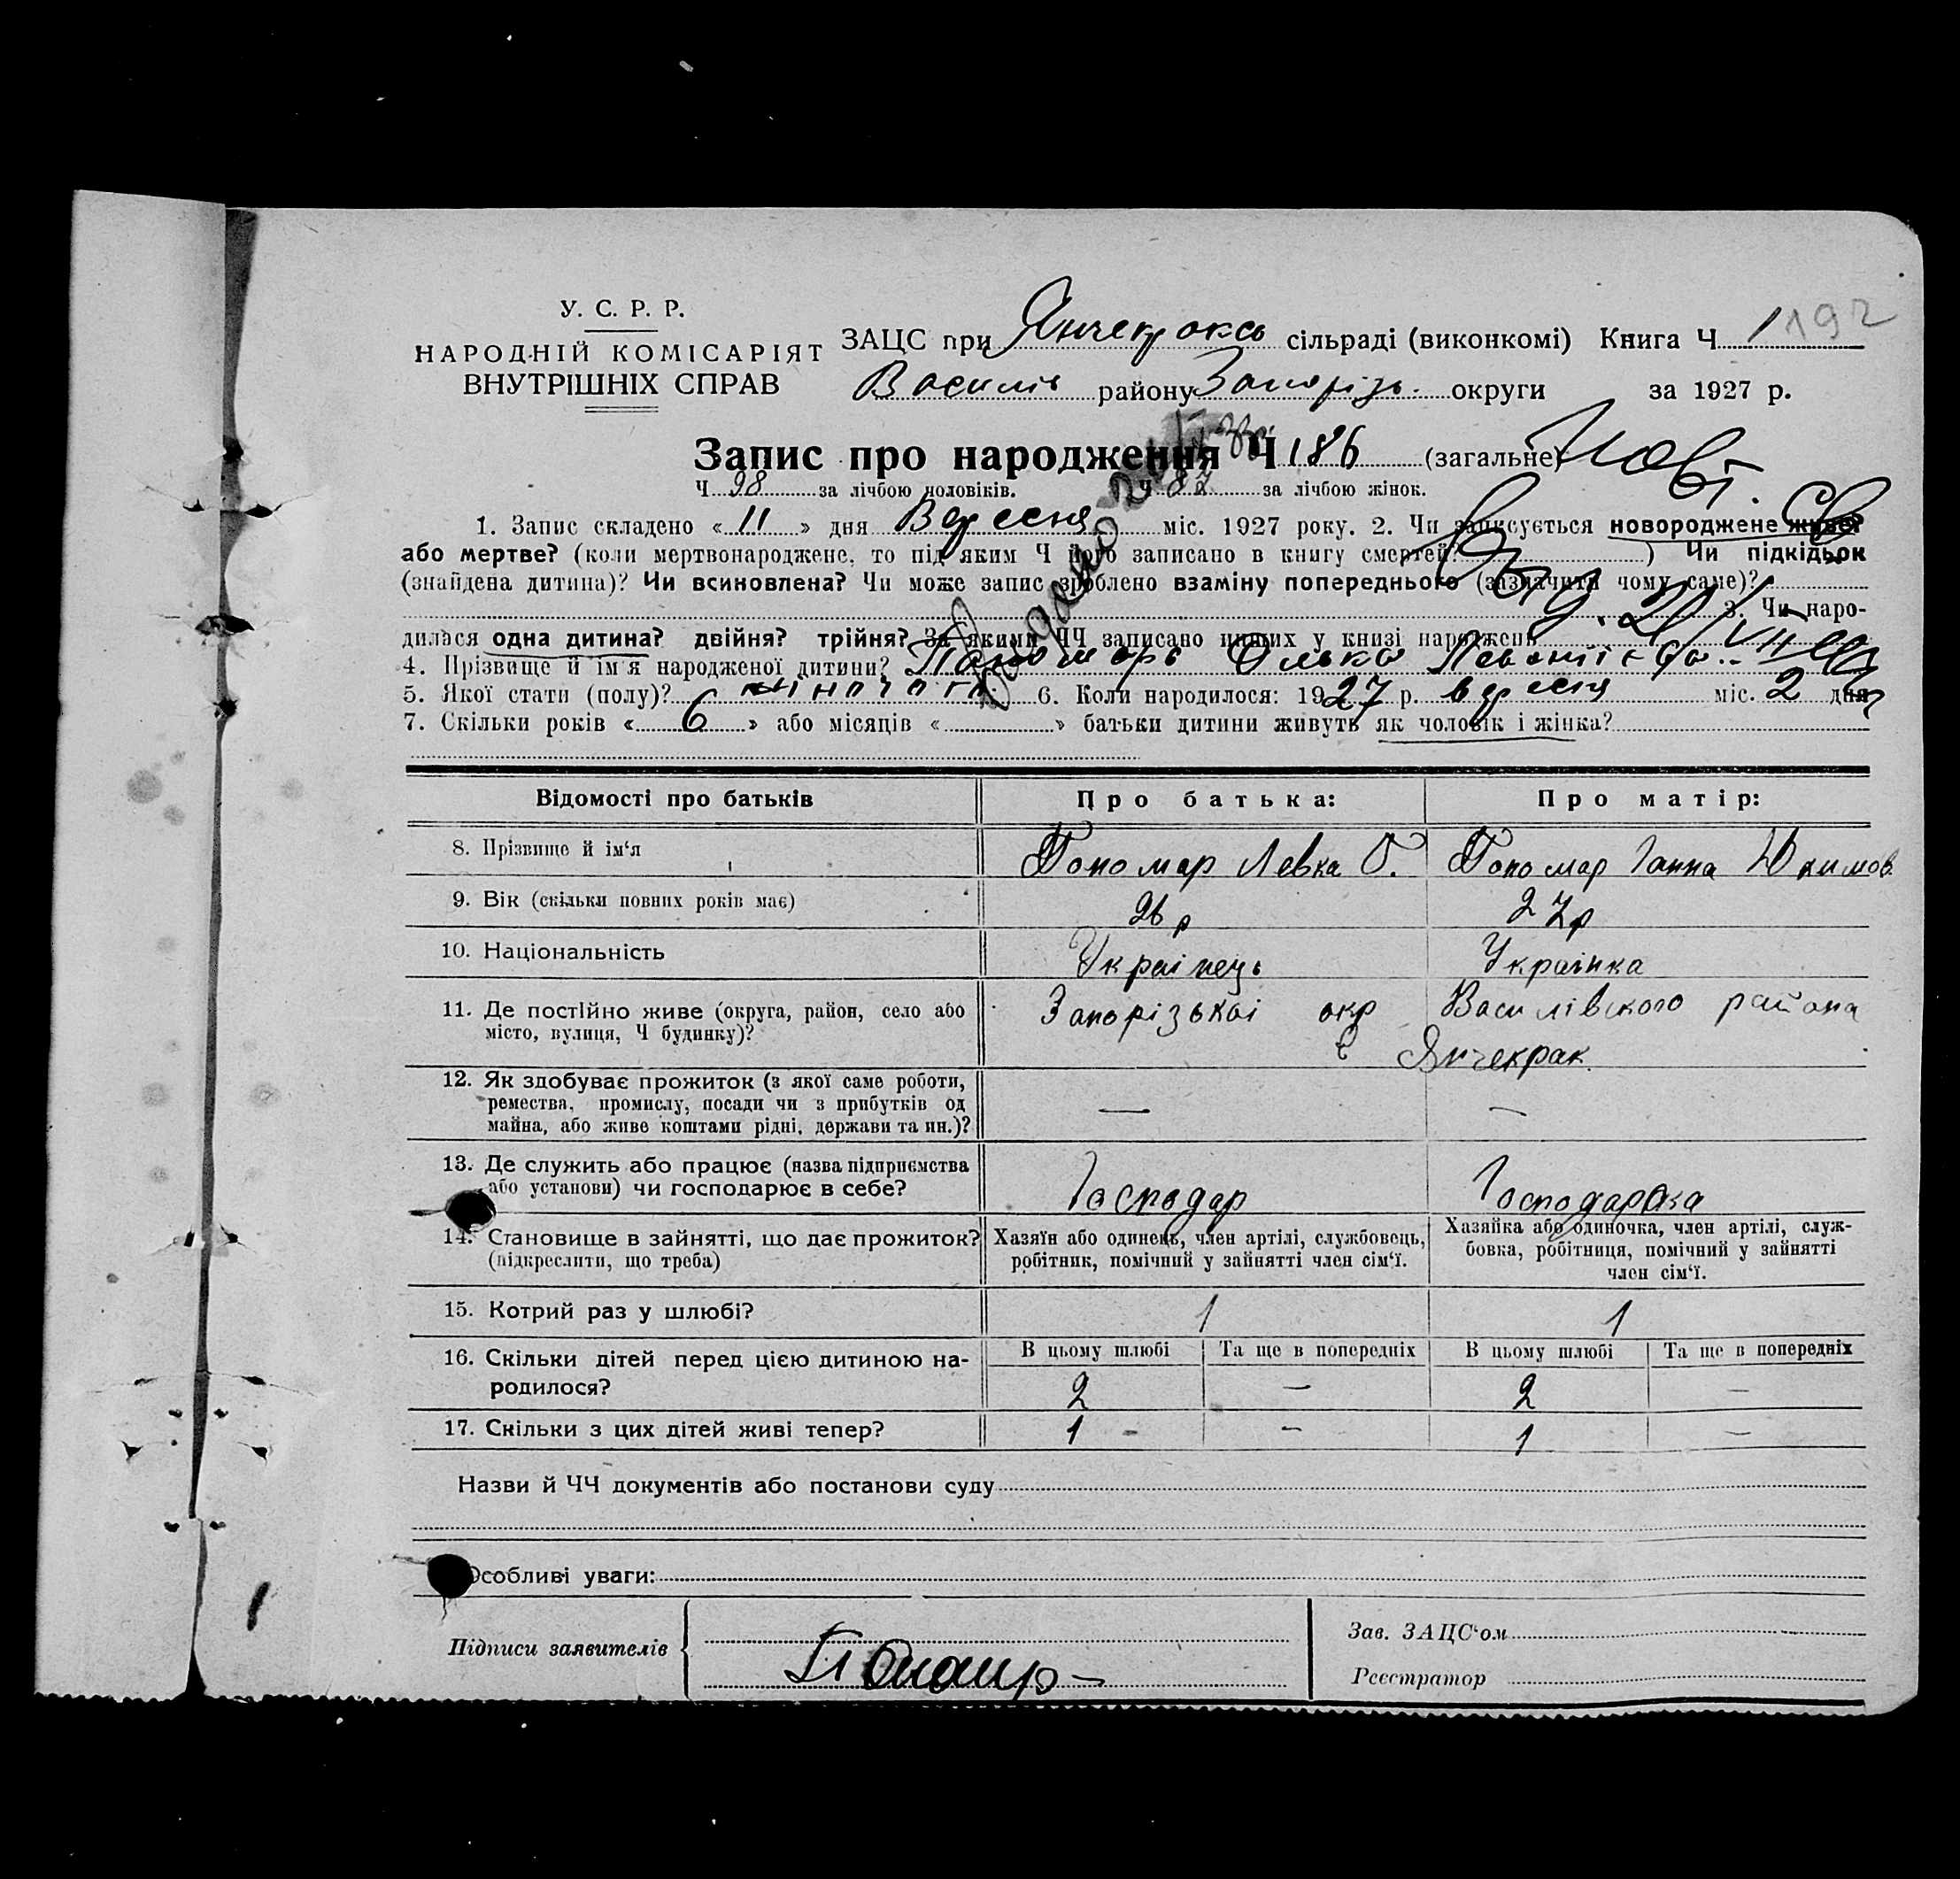 У. С. Р. Р.
НАРОДНІЙ КОМІСАРІЯТ
ВНУТРІШНІХ СПРАВ
ЗАЦС при Янчекрокс сільраді (виконкомі) Книга Ч 1 192
Василів району Запоріз. округи за 1927 р.
Запис про народження Ч 186 (загальне)
Ч 98 за лічбою чоловіків. Ч 87 за лічбою жінок.
1. Запис складено « 11 » дня Вересня міс. 1927 року. 2. Чи записується новороджене живе?
або мертве? (коли мертвонароджене, то під яким Ч його записано в книгу смертей? ) Чи підкідьок
(знайдена дитина)? Чи всиновлена? Чи може запис зроблено взаміну попереднього (зазначити чому саме)?
3. Чи наро-
дилася одна дитина? двійня? трійня? За якими ЧЧ записано инших у книзі народжень
4. Прізвище й ім'я народженої дитини? Пономарь Олька
5. Якої стати (полу)? 6. Коли народилося: 1927 р. вересня міс. 2 дня
7. Скільки років « 6 » або місяців « » батьки дитини живуть як чоловік і жінка?
Відомості про батьків Про батька: Про матір:
8. Прізвище й ім'я Пономар Левка О. Пономар Ганна Юхимов.
9. Вік (скільки повних років має) 26 р 27 р
10. Національність Українець Українка
11. Де постійно живе (округа, район, село або
місто, вулиця, Ч будинку)?
Запорізькоі окр Василівского района
с Янчекрак.
12. Як здобуває прожиток (з якої саме роботи,
ремества, промислу, посади чи з прибутків од
майна, або живе коштами рідні, держави та ин.)?
— —
13. Де служить або працює (назва підприємства
або установи) чи господарює в себе?
Господар Господарка
14. Становище в зайнятті, що дає прожиток?
(підкреслити, що треба)
Хазяїн або одинець, член артілі, службовець,
робітник, помічний у зайнятті член сім'ї.
Хазяйка або одиночка, член артілі, служ-
бовка, робітниця, помічний у зайнятті
член сім'ї.
15. Котрий раз у шлюбі? 1 1
16. Скільки дітей перед цією дитиною на-
родилося?
В цьому шлюбі Та ще в попередніх В цьому шлюбі Та ще в попередніх
2 — 2 —
17. Скільки з цих дітей живі тепер? 1 - – 1 —
Назви й ЧЧ документів або постанови суду
Особливі уваги:
Підписи заявителів
Зав. ЗАЦС'ом
Реєстратор